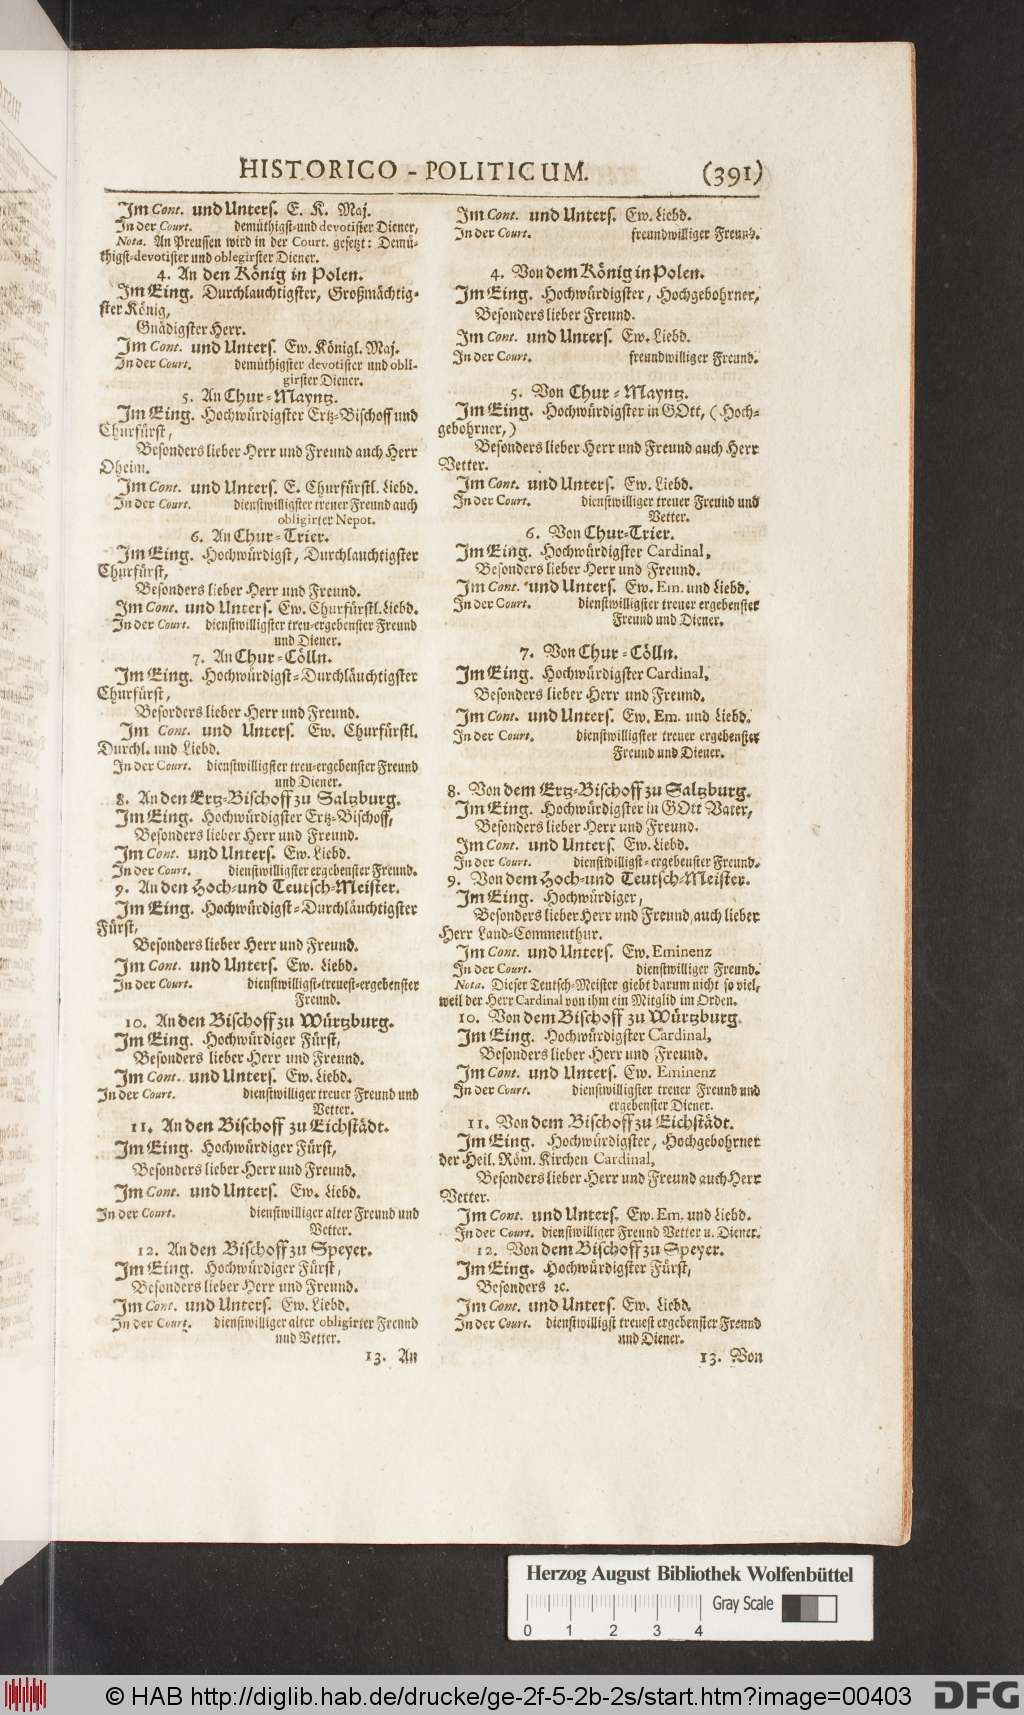 HISTORICO - POLITICUM. (391)
Im Cont. und Unters. E. K. Maj.
In der Court. demüthigst-und devotister Diener,
Nota. An Preussen wird in der Court. gesetzt: Demü-
thigst-devotister und oblegirster Diener.
4. An den König in Polen.
Im Eing. Durchlauchtigster, Großmächtig-
ster König,
Gnädigster Herr.
Im Cont. und Unters. Ew. Königl. Maj.
In der Court. demüthigster devotister und obli-
girster Diener.
5. An Chur-Mayntz.
Im Eing. Hochwürdigster Ertz-Bischoff und
Churfürst,
Besonders lieber Herr und Freund auch Herr
Oheim.
Im Cont. und Unters. E. Churfürstl. Liebd.
In der Court. dienstwilligster treuer Freund auch
obligirter Nepot.
6. An Chur-Trier.
Im Eing. Hochwürdigst, Durchlauchtigster
Churfürst,
Besonders lieber Herr und Freund.
Im Cont. und Unters. Ew. Churfürstl. Liebd.
In der Court. dienstwilligster treu-ergebenster Freund
und Diener.
7. An Chur-Cölln.
Im Eing. Hochwürdigst-Durchläuchtigster
Churfürst,
Besorders lieber Herr und Freund.
Im Cont. und Unters. Ew. Churfürstl.
Durchl. und Liebd.
In der Court. dienstwilligster treu-ergebenster Freund
und Diener.
8. An den Ertz-Bischoff zu Saltzburg.
Im Eing. Hochwürdigster Ertz-Bischoff,
Besonders lieber Herr und Freund.
Im Cont. und Unters. Ew. Liebd.
In der Court. dienstwilligster ergebenster Freund.
9. An den Hoch-und Teutsch-Meister.
Im Eing. Hochwürdigst-Durchläuchtigster
Fürst,
Besonders lieber Herr und Freund.
Im Cont. und Unters. Ew. Liebd.
In der Court. dienstwilligst-treuest-ergebenster
Freund.
10. An den Bischoff zu Würtzburg.
Im Eing. Hochwürdiger Fürst,
Besonders lieber Herr und Freund.
Im Cont. und Unters. Ew. Liebd.
In der Court. dienstwilliger treuer Freund und
Vetter.
11. An den Bischoff zu Eichstädt.
Im Eing. Hochwürdiger Fürst,
Besonders lieber Herr und Freund.
Im Cont. und Unters. Ew. Liebd.
In der Court. dienstwilliger alter Freund und
Vetter.
12. An den Bischoff zu Speyer.
Im Eing. Hochwürdiger Fürst,
Besonders lieber Herr und Freund.
Im Cont. und Unters. Ew. Liebd.
In der Court. dienstwilliger alter obligirter Freund
und Vetter.
13. An
Im Cont. und Unters. Ew. Liebd.
In der Court. freundwilliger Freund.
4. Von dem König in Polen.
Im Eing. Hochwürdigster, Hochgebohrner,
Besonders lieber Freund.
Im Cont. und Unters. Ew. Liebd.
In der Court. freundwilliger Freund.
5. Von Chur-Mayntz.
Im Eing. Hochwürdigster in GOtt, (Hoch-
gebohrner,)
Besonders lieber Herr und Freund auch Herr
Vetter.
Im Cont. und Unters. Ew. Liebd.
In der Court. dienstwilliger treuer Freund und
Vetter.
6. Von Chur-Trier.
Im Eing. Hochwürdigster Cardinal,
Besonders lieber Herr und Freund.
Im Cont. und Unters. Ew. Em. und Liebd.
In der Court. dienstwilligster treuer ergebenster
Freund und Diener.
7. Von Chur-Cölln.
Im Eing. Hochwürdigster Cardinal,
Besonders lieber Herr und Freund.
Im Cont. und Unters. Ew. Em. und Liebd.
In der Court. dienstwilligster treuer ergebenster
Freund und Diener.
8. Von dem Ertz-Bischoff zu Saltzburg.
Im Eing. Hochwürdigster in GOtt Vater,
Besonders lieber Herr und Freund.
Im Cont. und Unters. Ew. Liebd.
In der Court. dienstwilligst-ergebenster Freund.
9. Von dem Hoch-und Teutsch-Meister.
Im Eing. Hochwürdiger,
Besonders lieber Herr und Freund auch lieber
Herr Land-Commenthur.
Im Cont. und Unters. Ew. Eminenz
In der Court. dienstwilliger Freund.
Nota. Dieser Teutsch-Meister giebt darum nicht so viel,
weil der Herr Cardinal von ihm ein Mitglid im Orden.
10. Von dem Bischoff zu Würtzburg.
Im Eing. Hochwürdigster Cardinal,
Besonders lieber Herr und Freund.
Im Cont. und Unters. Ew. Eminenz
In der Court. dienstwilligster treuer Freund und
ergebenster Diener.
11. Von dem Bischoff zu Eichstädt.
Im Eing. Hochwürdigster, Hochgebohrner
der Heil. Röm. Kirchen Cardinal,
Besonders lieber Herr und Freund auch Herr
Vetter.
Im Cont. und Unters. Ew. Em. und Liebd.
In der Court. dienstwilliger Freund Vetter u. Diener.
12. Von dem Bischoff zu Speyer.
Im Eing. Hochwürdigster Fürst,
Besonders ꝛc.
Im Cont. und Unters. Ew. Liebd.
In der Court. dienstwilligst treuest ergebenster Freund
und Diener.
13. Von
Herzog August Bibliothek Wolfenbüttel
Gray Scale
0 1 2 3 4
© HAB http://diglib.hab.de/drucke/ge-2f-5-2b-2s/start.htm?image=00403
DFG